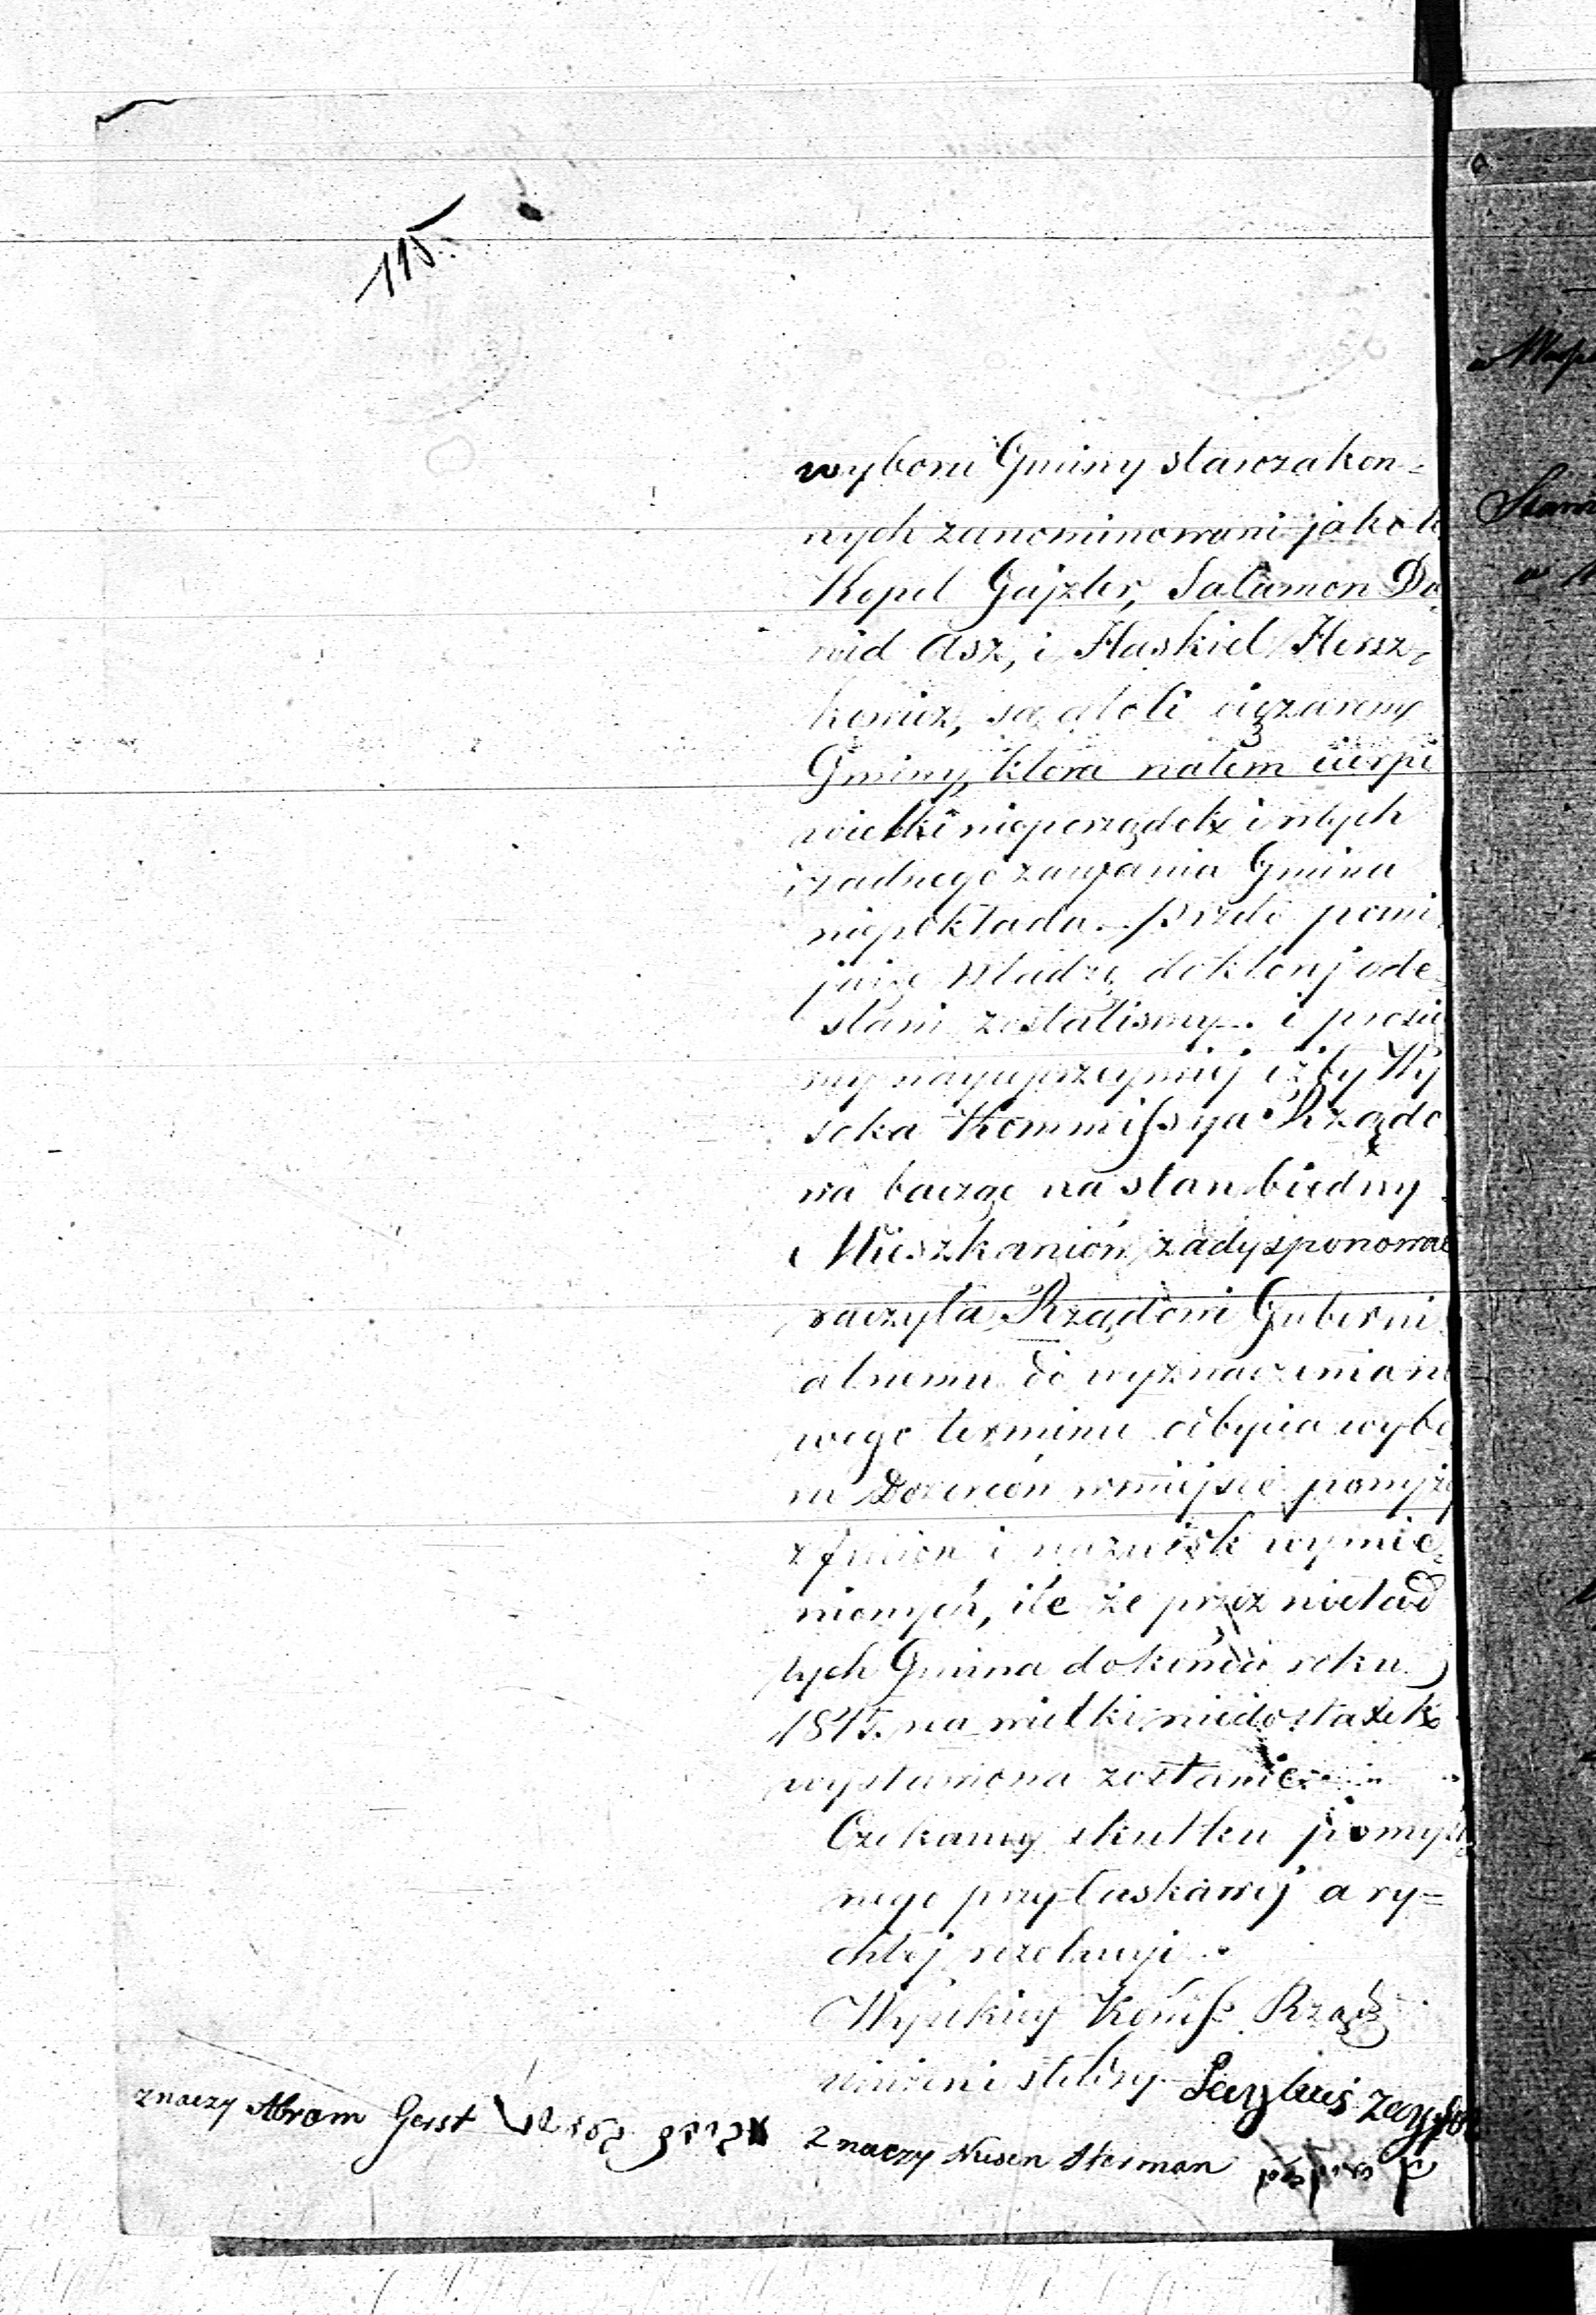 115.
wyboru Gminy starozakon=
nych zanominowani jako to
Kopel Gajzler, Salamon Da
wid Asz, i Haskiel Hersz,
kowicz, są atoli ciężarem
Gminy, ktora natem cierpi
wielki nieporządek i wtych
żadnego zaufania Gmina
niepokłada. Przeto pomi
jając Władzę doktorej ode
słani zostalismy. i prosie
my nayuprzeymiej iżby Wy
soka Kommissya Rządo
wa bacząc na stan biedny
Mieszkańców, zadysponować
raczyła Rządowi Guberni
alnemu do wyznaczenia no
wego terminu odbycia wybo
ru Dozorców wmiejsce powyży
z Imion i nazwisk wymie
nionych, ile że przez nieład
tych Gmina dokońca roku
1845. na wielki niedostatek
wystawiona zostanie
Czekamy skutku pomyśl
nego przy łaskawej a ry=
chłej rezolucyi.
Wysokiey Kommiss Rządz
uniżeni słudzy
znaczy Abram Gerst
Znaczy Nusen Sterman